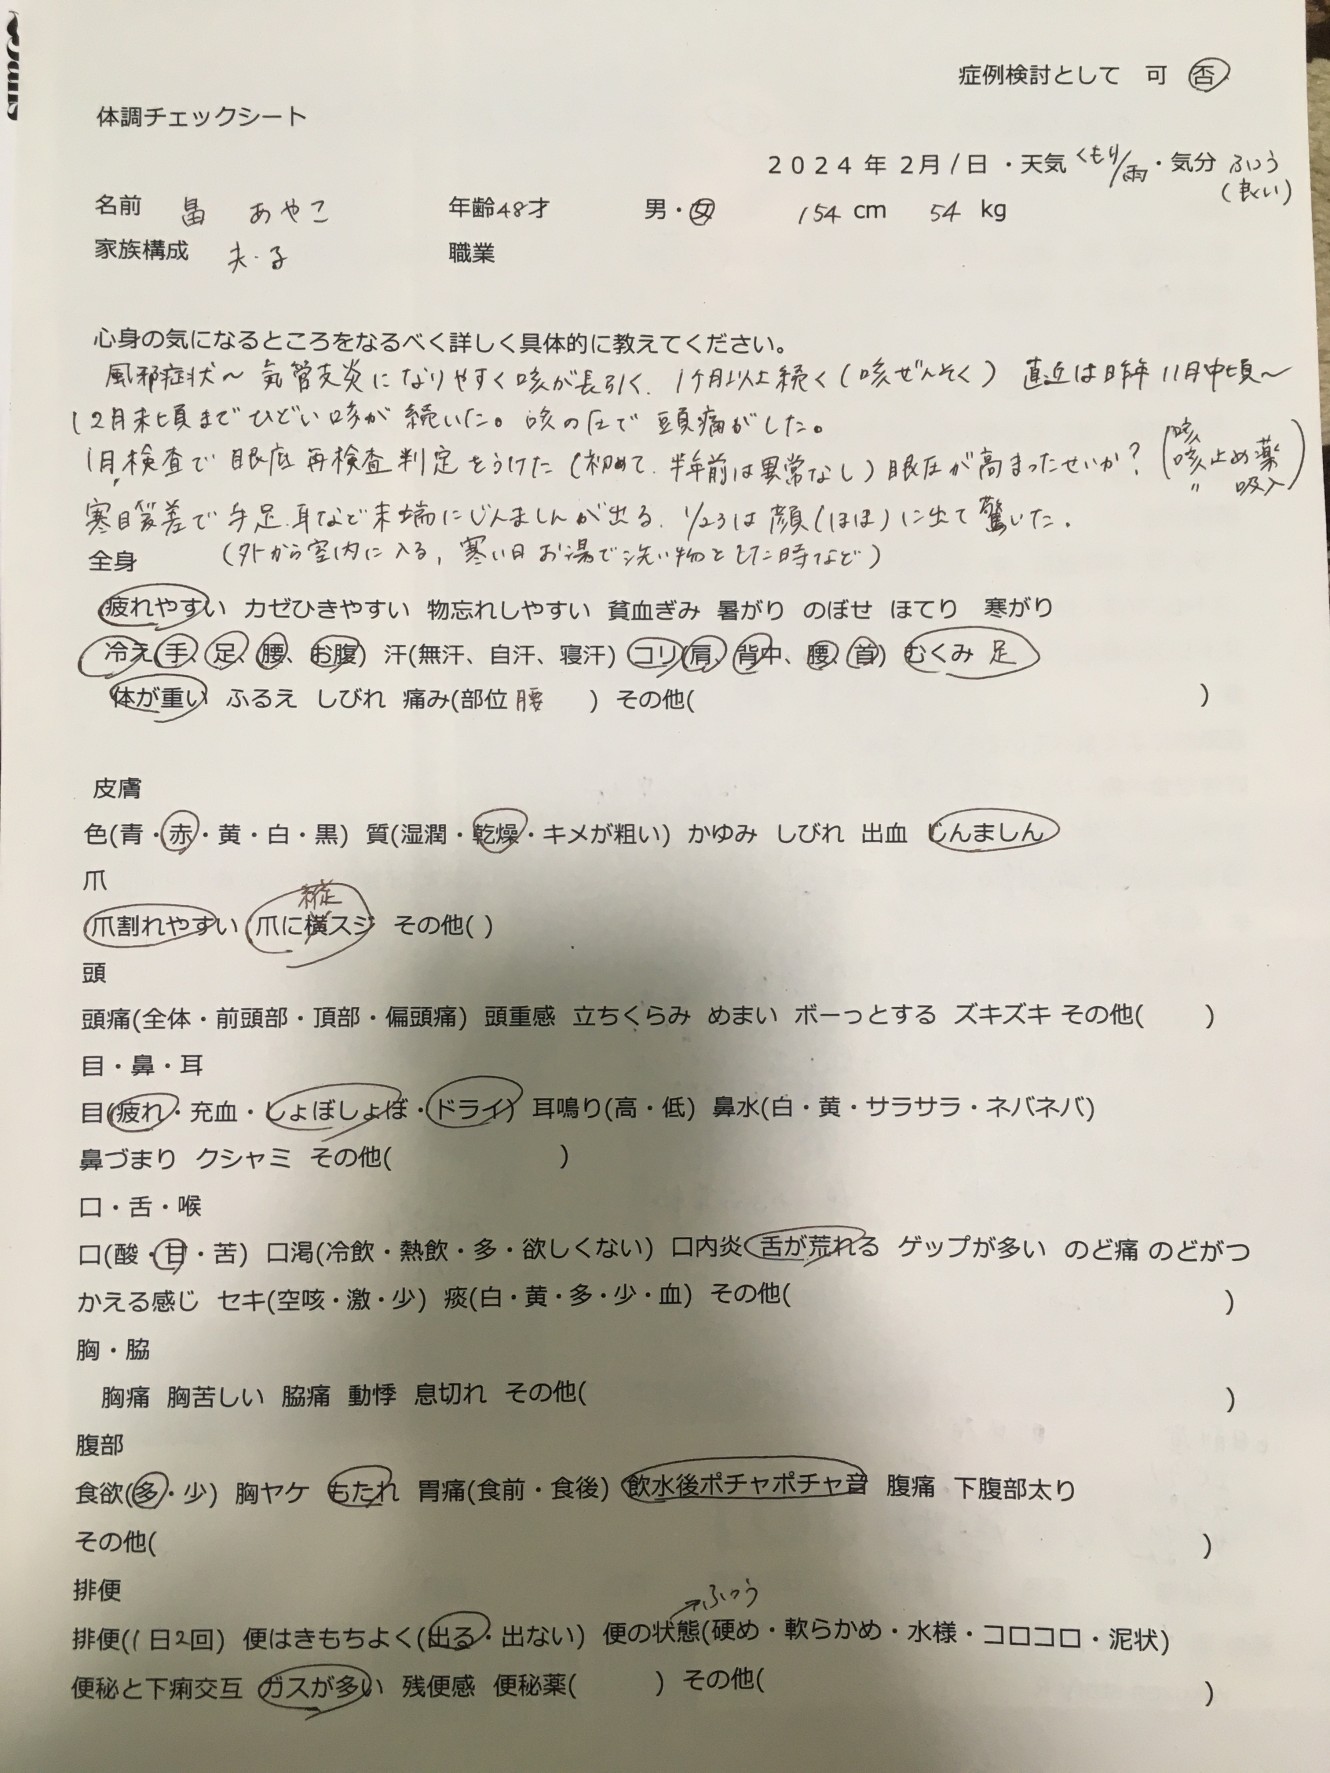 症例検討として 可 否
体調チェックシート
2024年 2月1日 ・天気 くもり/雨 ・気分 ふつう
(良い)
名前 畠 あやこ 年齢48才 男・女 154 cm 54 kg
家族構成 夫・子 職業
心身の気になるところをなるべく詳しく具体的に教えてください。
風邪症状〜気管支炎になりやすく咳が長引く、1ヶ月以上続く(咳ぜんそく) 直近は昨年11月中頃〜
12月末頃までひどい咳が続いた。咳の圧で頭痛がした。
1月検査で眼底再検査判定をうけた(初めて、半年前は異常なし)眼圧が高まったせいか?
(咳
咳止め薬
〃 吸入)
寒暖差で手足、耳など末端にじんましんが出る、1/23は顔(ほほ)に出て驚いた。
(外から室内に入る、寒い日お湯で洗い物をした時など)
全身
疲れやすい カゼひきやすい 物忘れしやすい 貧血ぎみ 暑がり のぼせ ほてり 寒がり
冷え(手、足、腰、お腹) 汗(無汗、自汗、寝汗) コリ(肩、背中、腰、首) むくみ 足
体が重い ふるえ しびれ 痛み(部位 腰 ) その他( )
皮膚
色(青・赤・黄・白・黒) 質(湿潤・乾燥・キメが粗い) かゆみ しびれ 出血 じんましん
爪
縦
爪割れやすい 爪に横スジ その他( )
頭
頭痛(全体・前頭部・頂部・偏頭痛) 頭重感 立ちくらみ めまい ボーっとする ズキズキ その他( )
目・鼻・耳
目(疲れ・充血・しょぼしょぼ・ドライ) 耳鳴り(高・低) 鼻水(白・黄・サラサラ・ネバネバ)
鼻づまり クシャミ その他( )
口・舌・喉
口(酸・甘・苦) 口渇(冷飲・熱飲・多・欲しくない) 口内炎 舌が荒れる ゲップが多い のど痛 のどがつ
かえる感じ セキ(空咳・激・少) 痰(白・黄・多・少・血) その他( )
胸・脇
胸痛 胸苦しい 脇痛 動悸 息切れ その他( )
腹部
食欲(多・少) 胸ヤケ もたれ 胃痛(食前・食後) 飲水後ポチャポチャ音 腹痛 下腹部太り
その他( )
排便
ふつう
排便(1日2回) 便はきもちよく(出る・出ない) 便の状態(硬め・軟らかめ・水様・コロコロ・泥状)
便秘と下痢交互 ガスが多い 残便感 便秘薬( ) その他( )